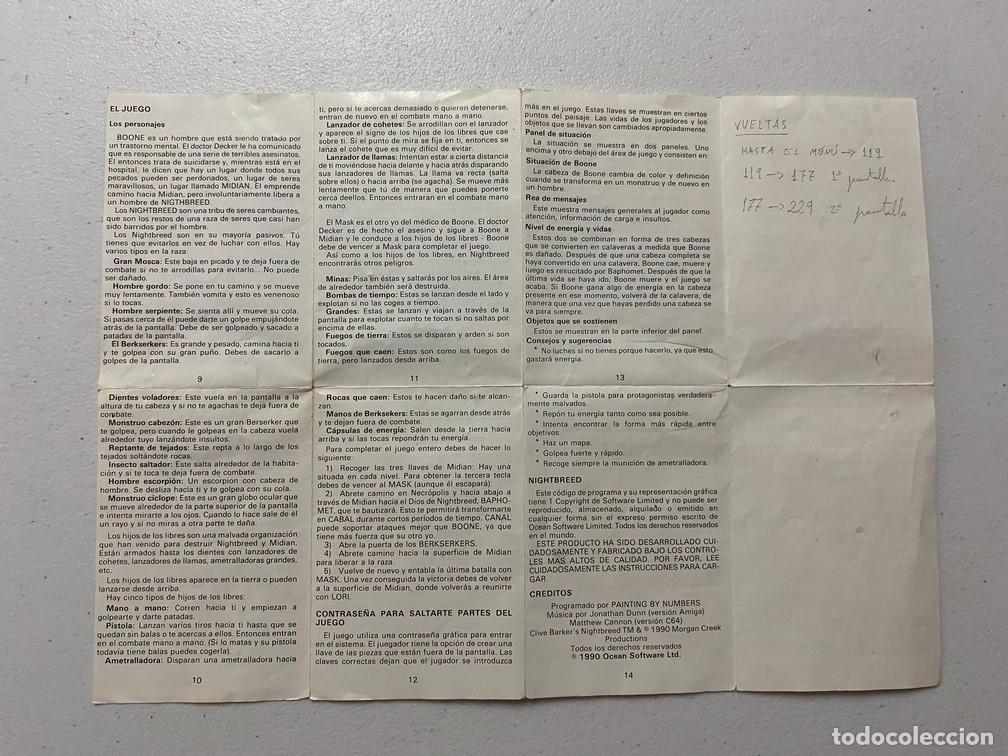 EL JUEGO
Los personajes
BOONE es un hombre que está siendo tratado por
un trastorno mental. El doctor Decker le ha comunicado
que es responsable de una serie de terribles asesinatos.
El entonces trata de suicidarse y, mientras está en el
hospital, le dicen que hay un lugar donde todos sus
pecados pueden ser perdonados, un lugar de seres
maravillosos, un lugar llamado MIDIAN. El emprende
camino hacia Midian, pero involuntariamente libera a
un hombre de NIGTHBREED.
Los NIGHTBREED son una tribu de seres cambiantes,
que son los restos de una raza de seres que casi han
sido barridos por el hombre.
Los Nightbreed son en su mayoría pasivos. Tú
tienes que evitarlos en vez de luchar con ellos. Hay
varios tipos en la raza:
Gran Mosca: Este baja en picado y te deja fuera de
combate si no te arrodillas para evitarlo... No puede
ser dañado.
Hombre gordo: Se pone en tu camino y se mueve
muy lentamente. También vomita y esto es venenoso
si lo tocas.
Hombre serpiente: Se sienta allí y mueve su cola.
Si pasas cerca de él puede darte un golpe empujándote
atrás de la pantalla. Debe de ser golpeado y sacado a
patadas de la pantalla.
El Berkserkers: Es grande y pesado, camina hacia ti
y te golpea con su gran puño. Debes de sacarlo a
golpes de la pantalla.
9
Dientes voladores: Este vuela en la pantalla a la
altura de tu cabeza y si no te agachas te deja fuera de
combate.
Monstruo cabezón: Este es un gran Berserker que
te golpea, pero cuando le golpeas en la cabeza vuela
alrededor tuyo lanzándote insultos.
Reptante de tejados: Este repta a lo largo de los
tejados soltándote rocas.
Insecto saltador: Este salta alrededor de la habita-
ción y si te toca te deja fuera de combate.
Hombre escorpión: Un escorpion con cabeza de
hombre. Se desliza hacia ti y te golpea con su cola.
Monstruo cíclope: Este es un gran globo ocular que
se mueve alrededor de la parte superior de la pantalla
e intenta mirarte a los ojos. Cuando lo hace sale de él
un rayo y si no miras a otra parte te daña.
Los hijos de los libres son una malvada organización
que han venido para destruir Nightbreed y Midian.
Están armados hasta los dientes con lanzadores de
cohetes, lanzadores de llamas, ametralladoras grandes,
etc.
Los hijos de los libres aparece en la tierra o pueden
lanzarse desde arriba.
Hay cinco tipos de hijos de los libres:
Mano a mano: Corren hacia ti y empiezan a
golpearte y darte patadas.
Pistola: Lanzan varios tiros hacia ti hasta que se
quedan sin balas o te acercas a ellos. Entonces entran
en el combate mano a mano. (Si lo matas y su pistola
todavía tiene balas puedes cogerla).
Ametralladora: Disparan una ametralladora hacia
10
ti, pero si te acercas demasiado o quieren detenerse,
entran de nuevo en el combate mano a mano.
Lanzador de cohetes: Se arrodillan con el lanzador
y aparece el signo de los hijos de los libres que cae
sobre ti. Si el punto de mira se fija en ti, entonces se
lanza el cohete que es muy difícil de evitar.
Lanzador de llamas: Intentan estar a cierta distancia
de ti moviéndose hacia delante y hacia atrás disparando
sus lanzadores de llamas. La llama va recta (salta
sobre ellos) o hacia arriba (se agacha). Se mueve más
lentamente que tú de manera que puedes ponerte
cerca deellos. Entonces entrarán en el combate mano
a mano.
El Mask es el otro yo del médico de Boone. El doctor
Decker es de hecho el asesino y sigue a Boone a
Midian y le conduce a los hijos de los libres - Boone
debe de vencer a Mask para completar el juego.
Así como a los hijos de los libres, en Nightbreed
encontrarás otros peligros.
Minas: Pisa en éstas y saltarás por los aires. El área
de alrededor también será destruida.
Bombas de tiempo: Estas se lanzan desde el lado y
explotan si no las coges a tiempo.
Grandes: Estas se lanzan y viajan a través de la
pantalla para explotar cuanto te tocan si no saltas por
encima de ellas.
Fuegos de tierra: Estos se disparan y arden si son
tocados.
Fuegos que caen: Estos son como los fuegos de
tierra, pero lanzados desde arriba.
11
Rocas que caen: Estos te hacen daño si te alcan-
zan.
Manos de Berksekers: Estas se agarran desde atrás
y te dejan fuera de combate.
Cápsulas de energía: Salen desde la tierra hacia
arriba y si las tocas repondrán tu energía.
Para completar el juego entero debes de hacer lo
siguiente:
1) Recoger las tres llaves de Midian: Hay una
situada en cada nivel. Para obtener la tercera tecla
debes de vencer al MASK (aunque él escapará).
2) Abrete camino en Necrópolis y hacia abajo a
través de Midian hacia el Dios de Nightbreed, BAPHO-
MET, que te bautizará. Esto te permitirá transformarte
en CABAL durante cortos períodos de tiempo. CANAL
puede soportar ataques mejor que BOONE, ya que
tiene más fuerza que su otro yo.
3) Abre la puerta de los BERSKERKERS.
4) Abrete camino hacia la superficie de Midian
para liberar a la raza.
5) Vuelve de nuevo y entabla la última batalla con
MASK. Una vez conseguida la victoria debes de volver
a la superficie de Midian, donde volverás a reunirte
con LORI.
CONTRASEÑA PARA SALTARTE PARTES DEL
JUEGO
El juego utiliza una contraseña gráfica para entrar
en el sistema. El juegador tiene la opción de crear una
llave de las piezas que están fuera de la pantalla. Las
claves correctas dejan que el jugador se introduzca
12
más en el juego. Estas llaves se muestran en ciertos
puntos del paisaje. Las vidas de los jugadores y los
objetos que se llevan son cambiados apropiadamente.
Panel de situación
La situación se muestra en dos paneles. Uno
encima y otro debajo del área de juego y consisten en:
Situación de Boone
La cabeza de Boone cambia de color y definición
cuando se transforma en un monstruo y de nuevo en
un hombre.
Rea de mensajes
Este muestra mensajes generales al jugador como
atención, información de carga e insultos.
Nivel de energía y vidas
Estos dos se combinan en forma de tres cabezas
que se convierten en calaveras a medida que Boone
es dañado. Después de que una cabeza completa se
haya convertido en una calavera, Boone cae, muere y
luego es resucitado por Baphomet. Después de que la
última vida se haya ido, Boone muere y el juego se
acaba. Si Boone gana algo de energía en la cabeza
presente en ese momento, volverá de la calavera, de
manera que una vez que hayas perdido una cabeza se
va para siempre.
Objetos que se sostienen
Estos se muestran en la parte inferior del panel.
Consejos y sugerencias
* No luches si no tienes porque hacerlo, ya que esto
gastará energía.
13
* Guarda la pistola para protagonistas verdadera-
mente malvados.
* Repón tu energía tanto como sea posible.
* Intenta encontrar la forma más rápida entre
objetivos.
* Haz un mapa.
* Golpea fuerte y rápido.
* Recoge siempre la munición de ametralladora.
NIGHTBREED
Este código de programa y su representación gráfica
tiene 1 Copyright de Software Limited y no puede ser
reproducido, almacenado, alquilado o emitido en
cualquier forma sin el expreso permiso escrito de
Ocean Software Limited. Todos los derechos reservados
en el mundo.
ESTE PRODUCTO HA SIDO DESARROLLADO CUI-
DADOSAMENTE Y FABRICADO BAJO LOS CONTRO-
LES MAS ALTOS DE CALIDAD. POR FAVOR, LEE
CUIDADOSAMENTE LAS INSTRUCCIONES PARA CAR-
GAR.
CREDITOS
Programado por PAINTING BY NUMBERS
Música por Jonathan Dunn (versión Amiga)
Matthew Cannon (versión C64)
Clive Barker's Nightbreed TM & © 1990 Morgan Creek
Productions
Todos los derechos reservados
© 1990 Ocean Software Ltd.
14
VUELTAS
HASTA EL MENÚ → 119
119 → 177 1ª pantalla.
177 → 229 2ª pantalla
todocoleccion